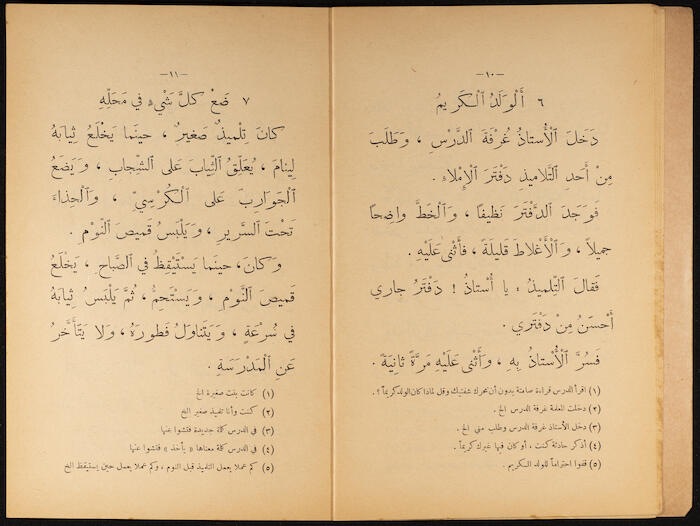 — ١٠ —
٦ أَلْوَلَدُ الْكَرِيمُ
دَخَلَ الْأُسْتَاذُ غُرْفَةَ الدَّرْسِ ، وَطَلَبَ
مِنْ أَحَدِ التَّلَامِيذِ دَفْتَرَ الْإِمْلَاءِ .
فَوَجَدَ الدَّفْتَرَ نَظِيفًا ، وَالْخَطَّ وَاضِحًا
جَمِيلًا ، وَالْأَغْلَاطَ قَلِيلَةً ، فَأَثْنَىٰ عَلَيْهِ .
فَقَالَ التِّلْمِيذُ : يا أُسْتَاذُ ! دَفْتَرُ جَارِي
أَحْسَنُ مِنْ دَفْتَرِي .
فَسُرَّ الْأُسْتَاذُ بِهِ ، وَأَثْنَى عَلَيْهِ مَرَّةً ثَانِيَةً .
(١) اقرأ الدرس قراءة صامتة بدون أن تحرك شفتيك وقل لماذا كان الولد كريماً ؟ .
(٢) دخلت المعلمة غرفة الدرس الخ .
(٣) دخل الأستاذ غرفة الدرس وطلب مني الخ .
(٤) أذكر حادثة كنت ، أو كان فيها غيرك كريماً .
(٥) قفوا احتراماً للولد الكريم .
— ١١ —
٧ ضَعْ كُلَّ شَيْءٍ في مَحَلِّهِ
كَانَ تِلْمِيذٌ صَغِيرٌ ، حِينَمَا يَخْلَعُ ثِيَابَهُ
لِيَنَامَ ، يُعَلِّقُ الثِّيَابَ عَلَى الشِّجَابِ ، وَيَضَعُ
الْجَوَارِبَ عَلَى الْكُرْسِيِّ ، وَالْحِذَاءَ
تَحْتَ السَّرِيرِ ، وَيَلْبَسُ قَمِيصَ النَّوْمِ .
وَكَانَ، حِينَمَا يَسْتَيْقِظُ في الصَّبَاحِ ، يَخْلَعُ
قَمِيصَ النَّوْمِ ، وَيَسْتَحِمُّ ، ثُمَّ يَلْبَسُ ثِيَابَهُ
في سُرْعَةٍ ، وَيَتَنَاوَلُ فَطُورَهُ ، وَلَا يَتَأَخَّرُ
عَنِ الْمَدْرَسَةِ .
(١) كانت بنت صغيرة الخ
(٢) كنت وأنا تلميذ صغير الخ
(٣) في الدرس كلمة جديدة فتشوا عنها
(٤) في الدرس كلمة معناها « يأخذ » فتشوا عنها
(٥) كم عملا يعمل التلميذ قبل النوم ، وكم عملا يعمل حين يستيقظ الخ